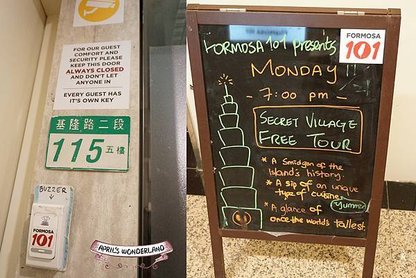 FOR OUR GUEST
COMFORT AND
SECURITY PLEASE
KEEP THIS DOOR
ALWAYS CLOSED
AND DON'T LET
ANYONE IN
EVERY GUEST HAS
IT'S OWN KEY
基隆路二段
115五樓
BUZZER
FORMOSA
101
APRIL'S WONDERLAND
FORMOSA 101 presents
FORMOSA
101
MONDAY!!
- 7:00 pm -
SECRET VILLAGE
FREE TOUR
* A Smidgen of the
Island's history.
* A sip of an unique
type of cuisine.
(yummy)
* A glance of
once the worlds tallest.